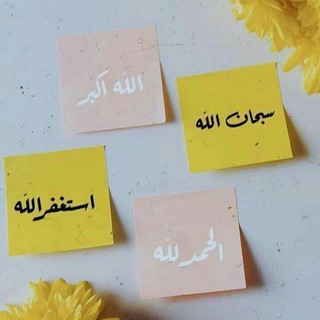 الله أكبر
سبحان الله
استغفر الله
الحمد لله